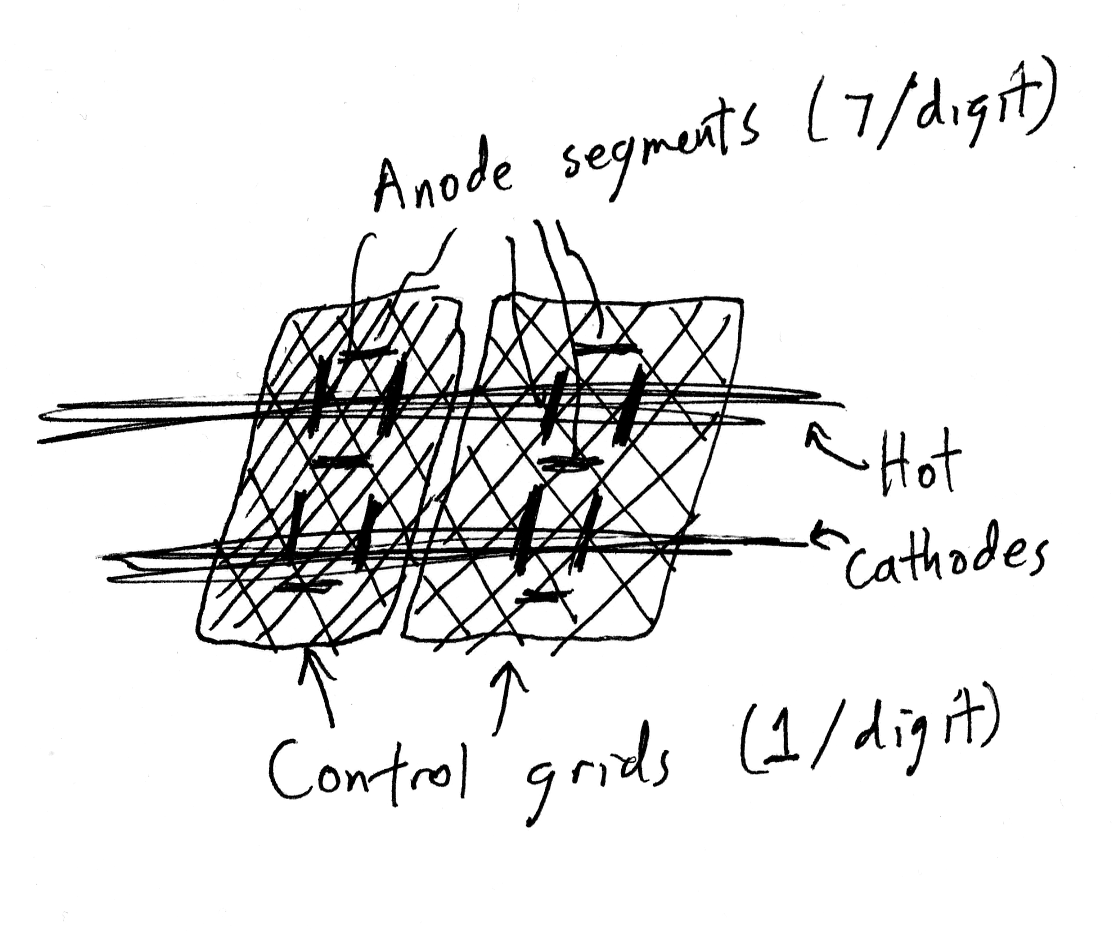 Anode segments (7/digit)
Hot
cathodes
Control grids (1/digit)